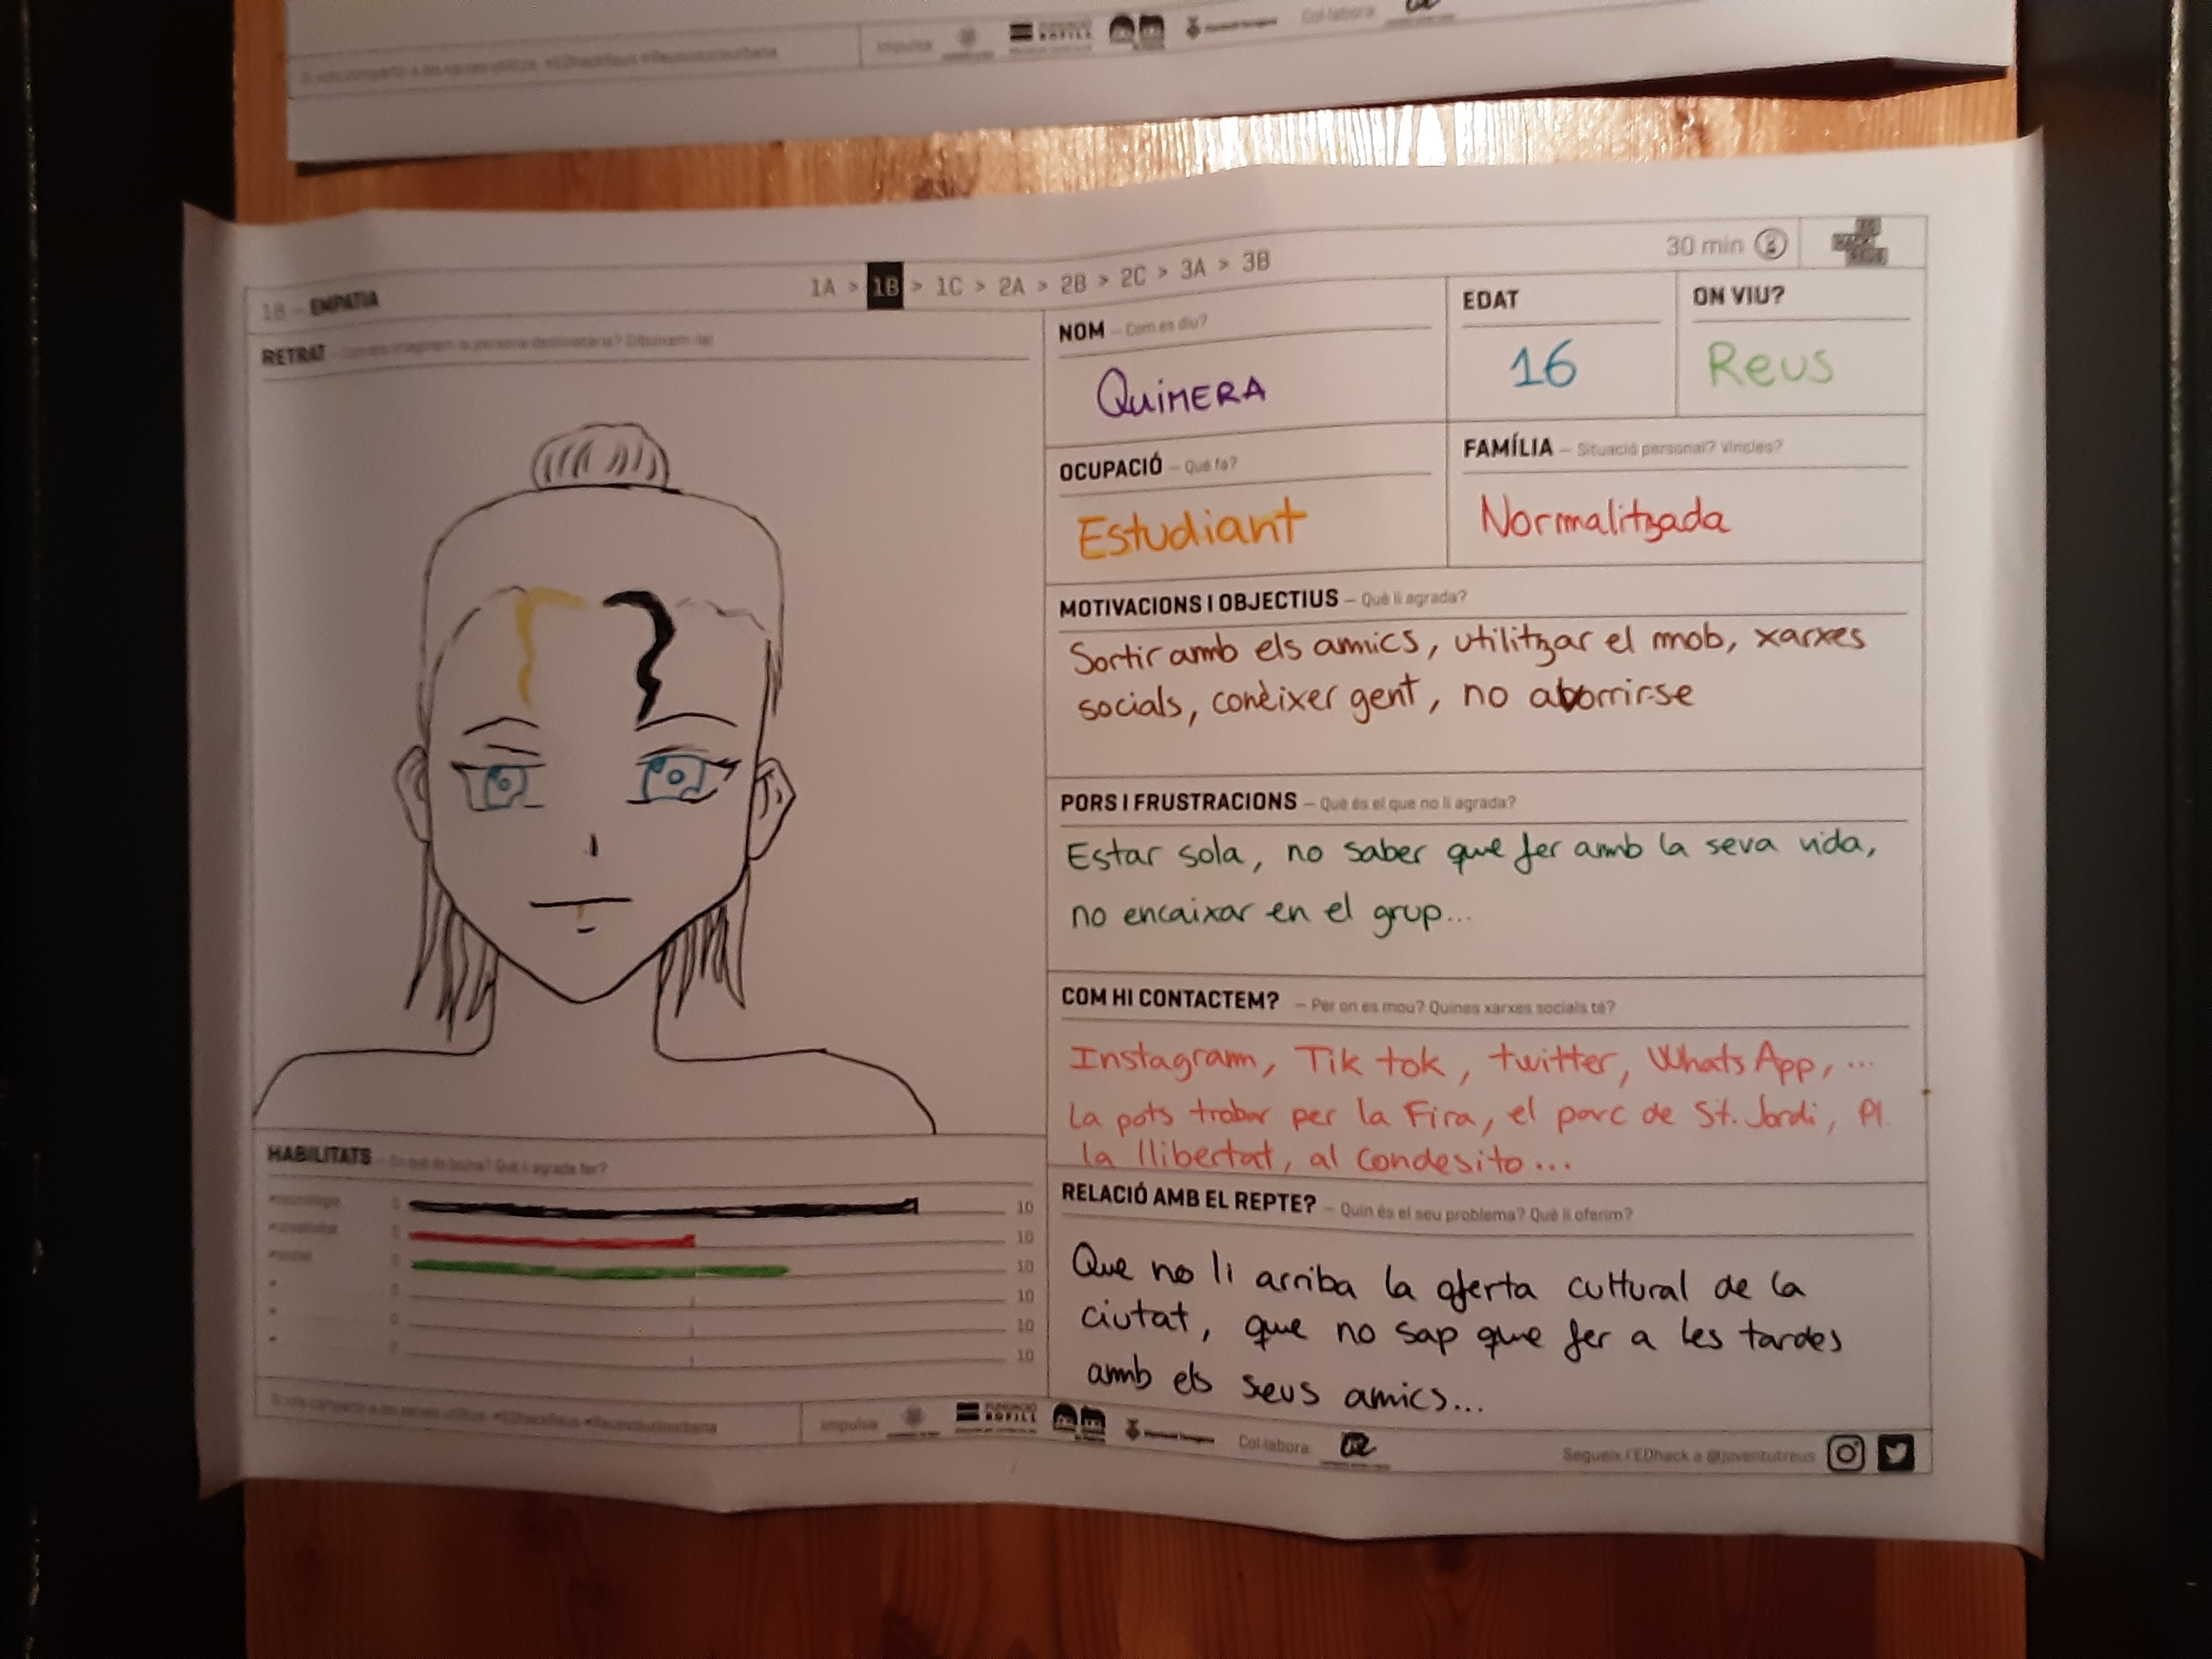 Si vols compartir a les xarxes utilitza: #EDhackReus #Reusvoluciourbana
Impulsa
FUNDACIÓ
BOFILL
Col·labora:
1B – EMPATIA
1A > 1B > 1C > 2A > 2B > 2C > 3A > 3B
30 min
RETRAT – Com ens imaginem la persona destinatària? Dibuixem-la!
NOM – Com es diu?
QUIMERA
EDAT
16
ON VIU?
Reus
OCUPACIÓ – Què fa?
Estudiant
FAMÍLIA – Situació personal? Vincles?
Normalitzada
MOTIVACIONS I OBJECTIUS – Què li agrada?
Sortir amb els amics, utilitzar el mob, xarxes
socials, conèixer gent, no aborrir-se
PORS I FRUSTRACIONS – Què és el que no li agrada?
Estar sola, no saber que fer amb la seva vida,
no encaixar en el grup...
COM HI CONTACTEM? – Per on es mou? Quines xarxes socials té?
Instagram, Tik tok, twitter, WhatsApp, ...
La pots trobar per la Fira, el parc de St. Jordi, Pl.
la llibertat, al Condesito...
RELACIÓ AMB EL REPTE? – Quin és el seu problema? Què li oferim?
Que no li arriba la oferta cultural de la
ciutat, que no sap que fer a les tardes
amb els seus amics...
HABILITATS – En què és bo/na? Què li agrada fer?
#tecnologia 0 10
#creativitat 0 10
#social 0 10
0 10
0 10
0 10
Si vols compartir a les xarxes utilitza: #EDhackReus #Reusvoluciourbana
Impulsa
FUNDACIÓ
BOFILL
Col·labora:
Segueix l'EDhack a @joventutreus